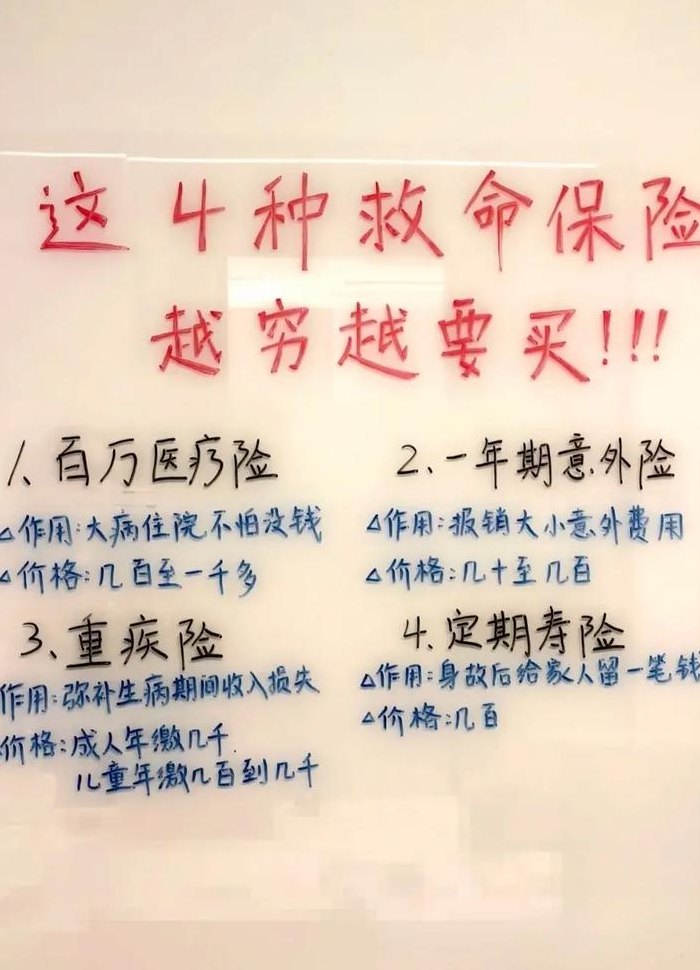 这4种救命保险
越穷越要买!!!
1、百万医疗险
△作用:大病住院不怕没钱
△价格:几百至一千多
2、一年期意外险
△作用:报销大小意外费用
△价格:几十至几百
3、重疾险
作用:弥补生病期间收入损失
价格:成人年缴几千
儿童年缴几百到几千
4、定期寿险
△作用:身故后给家人留一笔钱
△价格:几百